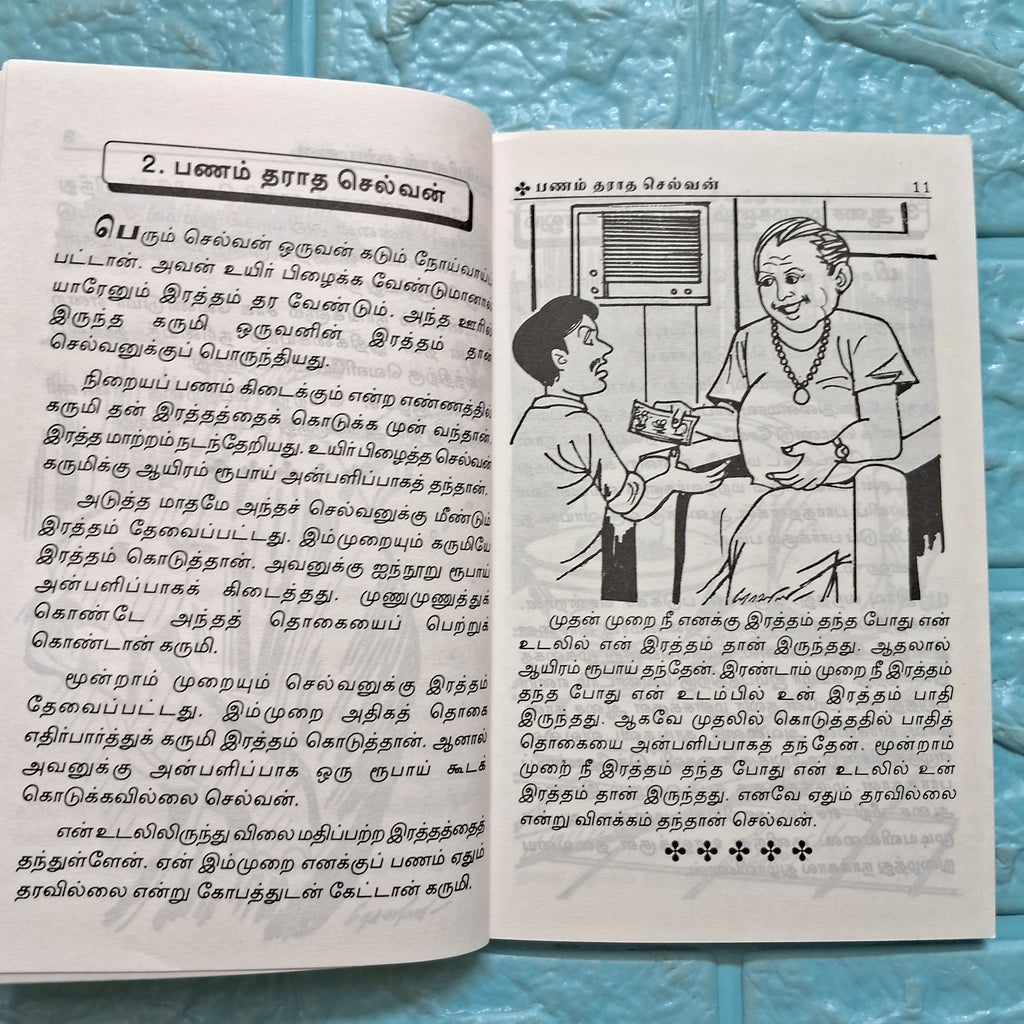 2. பணம் தராத செல்வன்
பெரும் செல்வன் ஒருவன் கடும் நோய்வாய்ப்
பட்டான். அவன் உயிர் பிழைக்க வேண்டுமானால்
யாரேனும் இரத்தம் தர வேண்டும். அந்த ஊரில்
இருந்த கருமி ஒருவனின் இரத்தம் தான்
செல்வனுக்குப் பொருந்தியது.
நிறையப் பணம் கிடைக்கும் என்ற எண்ணத்தில்
கருமி தன் இரத்தத்தைக் கொடுக்க முன் வந்தான்.
இரத்த மாற்றம் நடந்தேறியது. உயிர் பிழைத்த செல்வன்
கருமிக்கு ஆயிரம் ரூபாய் அன்பளிப்பாகத் தந்தான்.
அடுத்த மாதமே அந்தச் செல்வனுக்கு மீண்டும்
இரத்தம் தேவைப்பட்டது. இம்முறையும் கருமியே
இரத்தம் கொடுத்தான். அவனுக்கு ஐந்நூறு ரூபாய்
அன்பளிப்பாகக் கிடைத்தது. முணுமுணுத்துக்
கொண்டே அந்தத் தொகையைப் பெற்றுக்
கொண்டான் கருமி.
மூன்றாம் முறையும் செல்வனுக்கு இரத்தம்
தேவைப்பட்டது. இம்முறை அதிகத் தொகை
எதிர்பார்த்துக் கருமி இரத்தம் கொடுத்தான். ஆனால்
அவனுக்கு அன்பளிப்பாக ஒரு ரூபாய் கூடக்
கொடுக்கவில்லை செல்வன்.
என் உடலிலிருந்து விலை மதிப்பற்ற இரத்தத்தைத்
தந்துள்ளேன். ஏன் இம்முறை எனக்குப் பணம் ஏதும்
தரவில்லை என்று கோபத்துடன் கேட்டான் கருமி.
பணம் தராத செல்வன் 11
முதன் முறை நீ எனக்கு இரத்தம் தந்த போது என்
உடலில் என் இரத்தம் தான் இருந்தது. ஆதலால்
ஆயிரம் ரூபாய் தந்தேன். இரண்டாம் முறை நீ இரத்தம்
தந்த போது என் உடம்பில் உன் இரத்தம் பாதி
இருந்தது. ஆகவே முதலில் கொடுத்ததில் பாதித்
தொகையை அன்பளிப்பாகத் தந்தேன். மூன்றாம்
முறை நீ இரத்தம் தந்த போது என் உடலில் உன்
இரத்தம் தான் இருந்தது. எனவே ஏதும் தரவில்லை
என்று விளக்கம் தந்தான் செல்வன்.